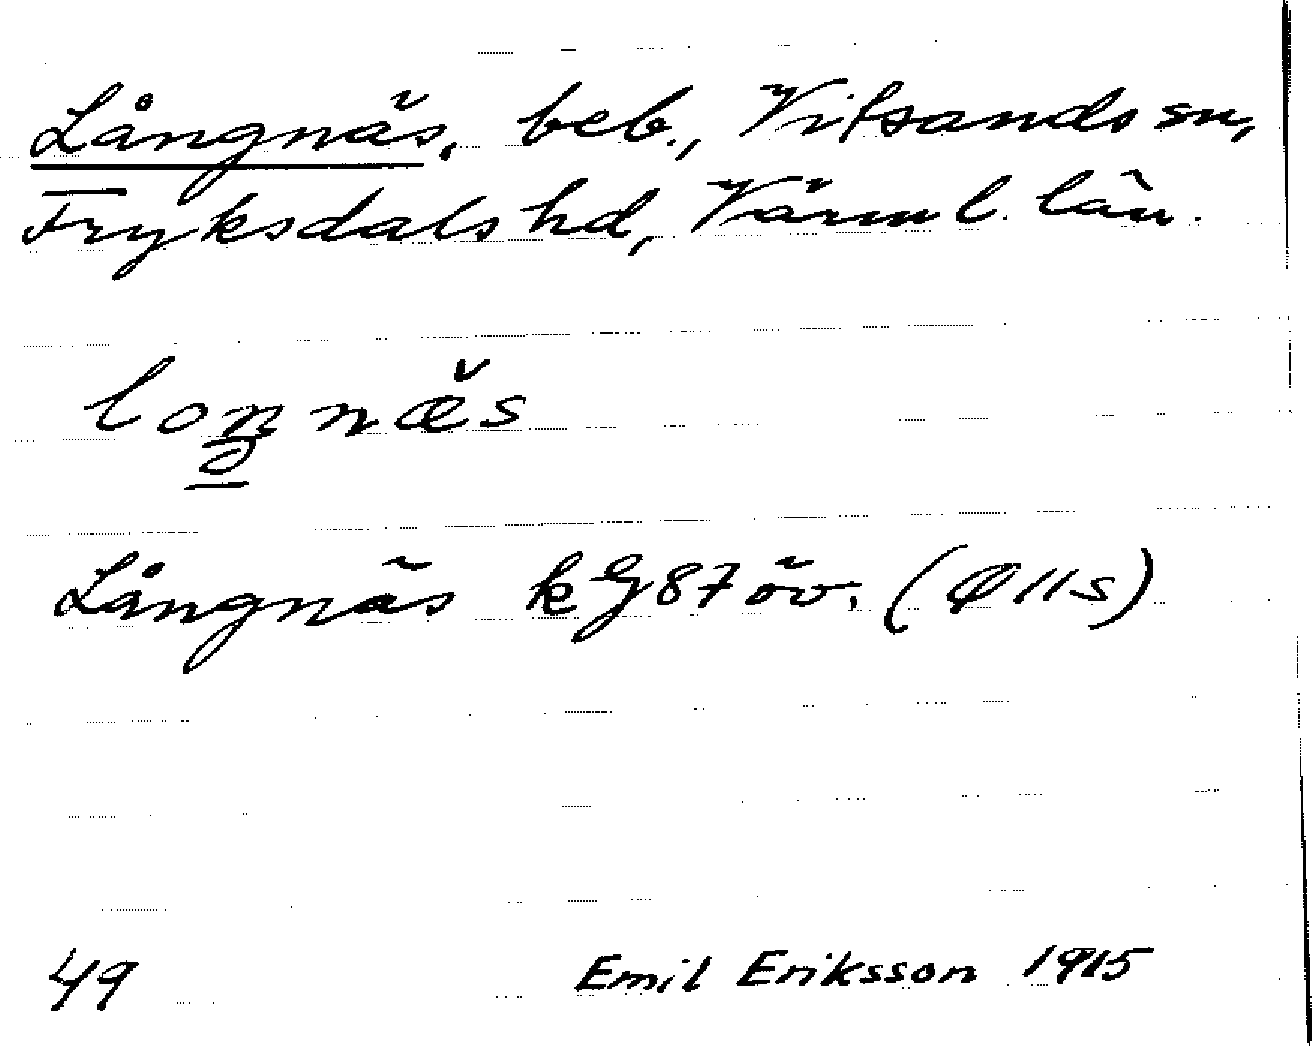 Långnäs, beb., Vitsands sn,
Fryksdals hd, Värml. län.
Långnäs kG87 öv. (Ø11s)
49 Emil Eriksson 1915